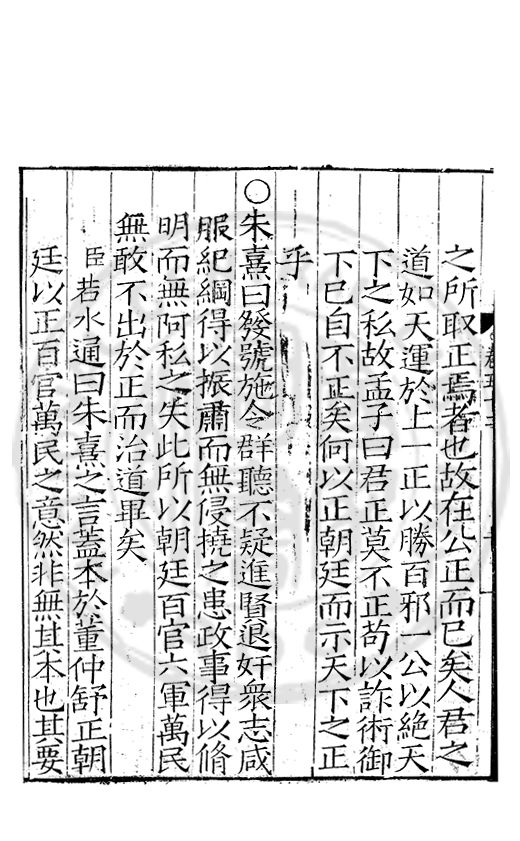 之所取正焉者也故在公正而已矣人君之
道如天運於上一正以勝百邪一公以絶天
下之私故孟子曰君正莫不正苟以詐術御
下已自不正矣何以正朝廷而示天下之正
乎
○朱熹曰發號施令群聽不疑進賢退奸衆志咸
服紀綱得以振肅而無侵撓之患政事得以脩
明而無阿私之失此所以朝廷百官六軍萬民
無敢不出於正而治道畢矣
臣若水通曰朱熹之言蓋本於董仲舒正朝
廷以正百官萬民之意然非無其本也其要